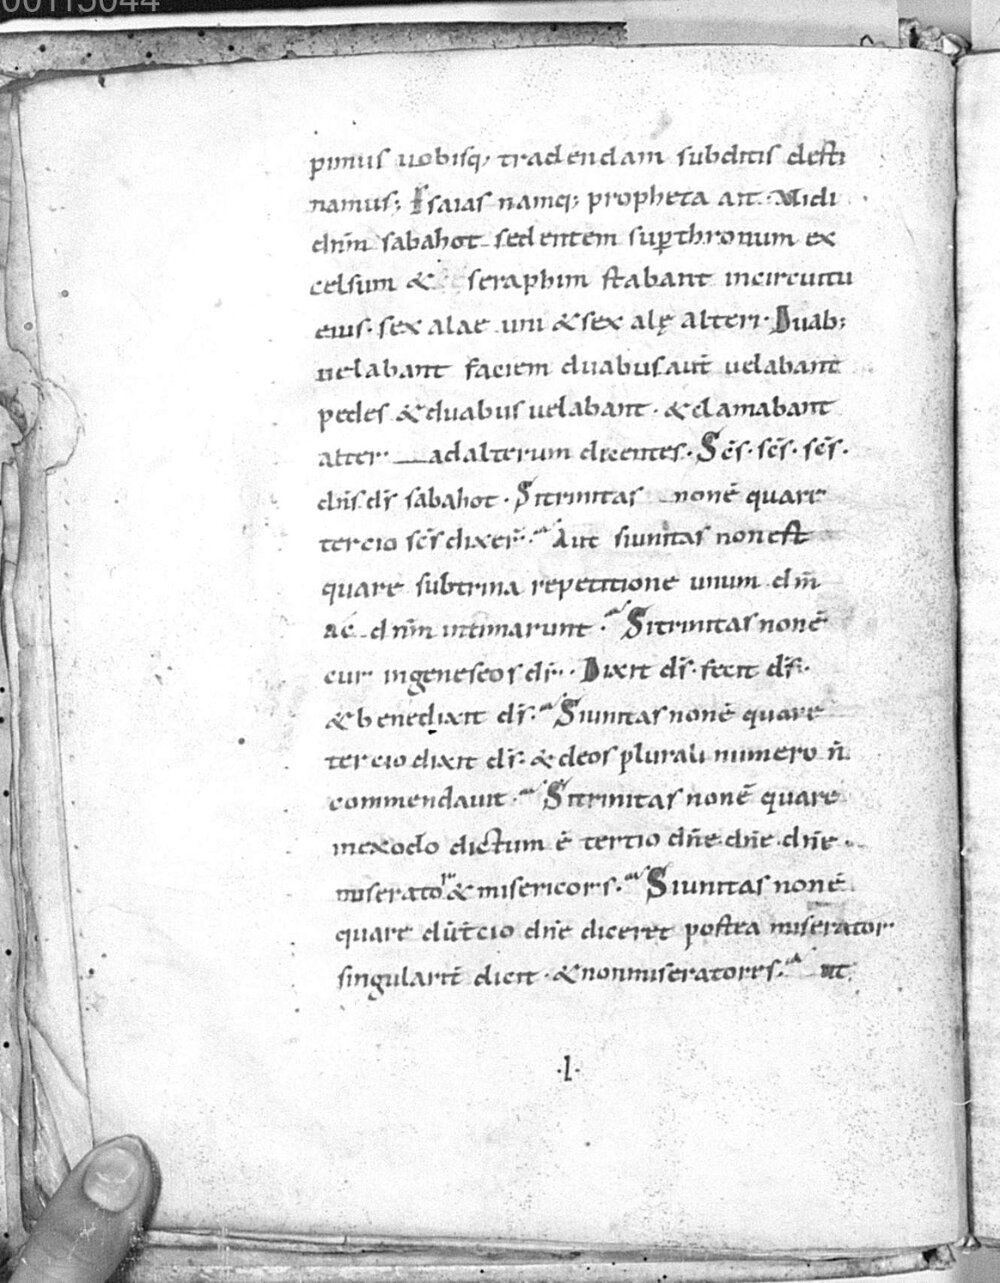 00115044
pimus uobisq; tradendam subditis desti
namus; Isaias namq; propheta ait. Uidi
dnm̄ sabahot sedentem sup̱ thronum ex
celsum & seraphim stabant incircuitu
eius. sex alae uni & sex alę alteri. Duab;
uelabant faciem duabus aut̄ uelabant
pedes & duabus uelabant. & clamabant
alter ad alterum dicentes. Sc̄s. sc̄s. sc̄s.
dn̄s ds̄ sabahot. Si trinitas non ē quare
tercio sc̄s dixer̄. Aut si unitas non est
quare sub trina repetitione unum dm̄
ac dnm̄ intimarunt. Si trinitas non ē
cur in geneseos dr̄. Dixit ds̄. fecit ds̄.
& benedixit ds̄. Si unitas non ē quare
tercio dixit ds̄. & deos plurali numero n̄
commendauit. Si trinitas non ē quare
in exodo dictum ē tertio dn̄e dn̄e dn̄e
miserator & misericors. Si unitas non ē
quare cū t̄cio dn̄e diceret postea miserator
singularit̄ dicit. & non miseratores. ut
.l.